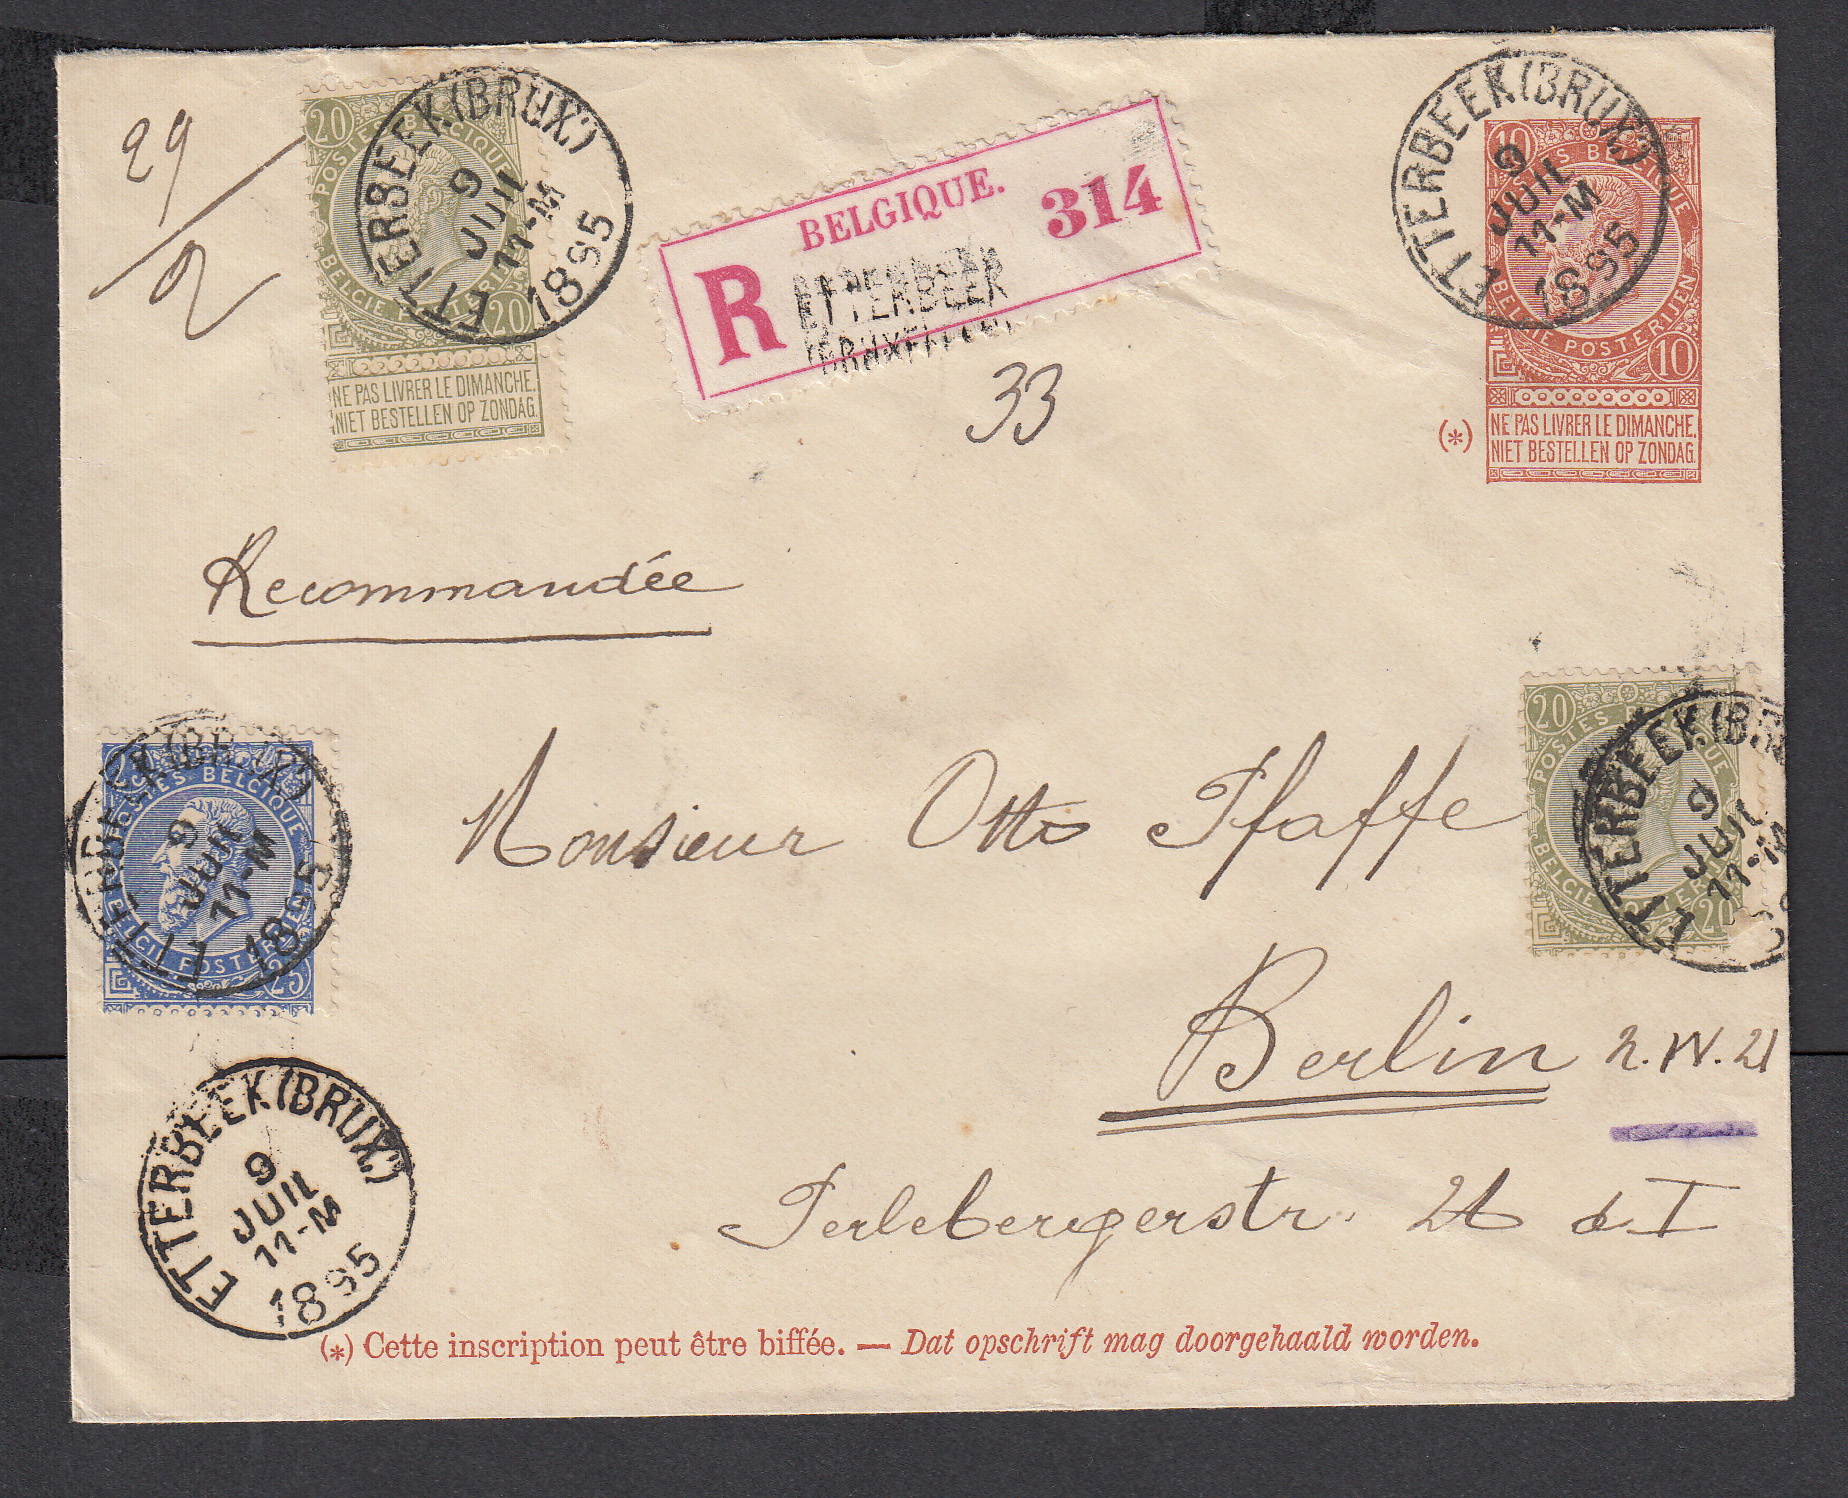 29
2
20
POSTES BELGIQUE
BELGIE POSTERIJEN
20
NE PAS LIVRER LE DIMANCHE.
NIET BESTELLEN OP ZONDAG.
ETTERBEEK (BRUX.)
9
JUIL
11-M
1895
BELGIQUE.
R
314
ETTERBEEK
(BRUXELLES)
33
10
POSTES BELGIQUE
BELGIE POSTERIJEN
10
ETTERBEEK (BRUX.)
9
JUIL
11-M
1895
(*) NE PAS LIVRER LE DIMANCHE.
NIET BESTELLEN OP ZONDAG.
Recommandée
25
POSTES BELGIQUE
BELGIE POSTERIJEN
25
ETTERBEEK (BRUX.)
9
JUIL
11-M
1895
Monsieur Otto Pfaffe
20
POSTES BELGIQUE
BELGIE POSTERIJEN
20
ETTERBEEK (BR
9
JUIL
11-M
Berlin N.W. 21
Perlebergerstr.
I
ETTERBEEK (BRUX.)
9
JUIL
11-M
1895
(*) Cette inscription peut être biffée. — Dat opschrift mag doorgehaald worden.